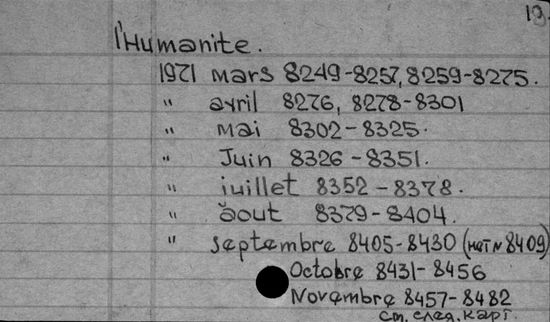 19.
l'Humanite.
1971 mars 8249-8257, 8259-8275.
" avril 8276, 8278-8301
" mai 8302-8325.
" Juin 8326-8351.
" iuillet 8352-8378.
" aout 8379-8404.
" septembre 8405-8430 (нет N 8409)
Octobre 8431-8456
Novembre 8457-8482
см. след. карт.